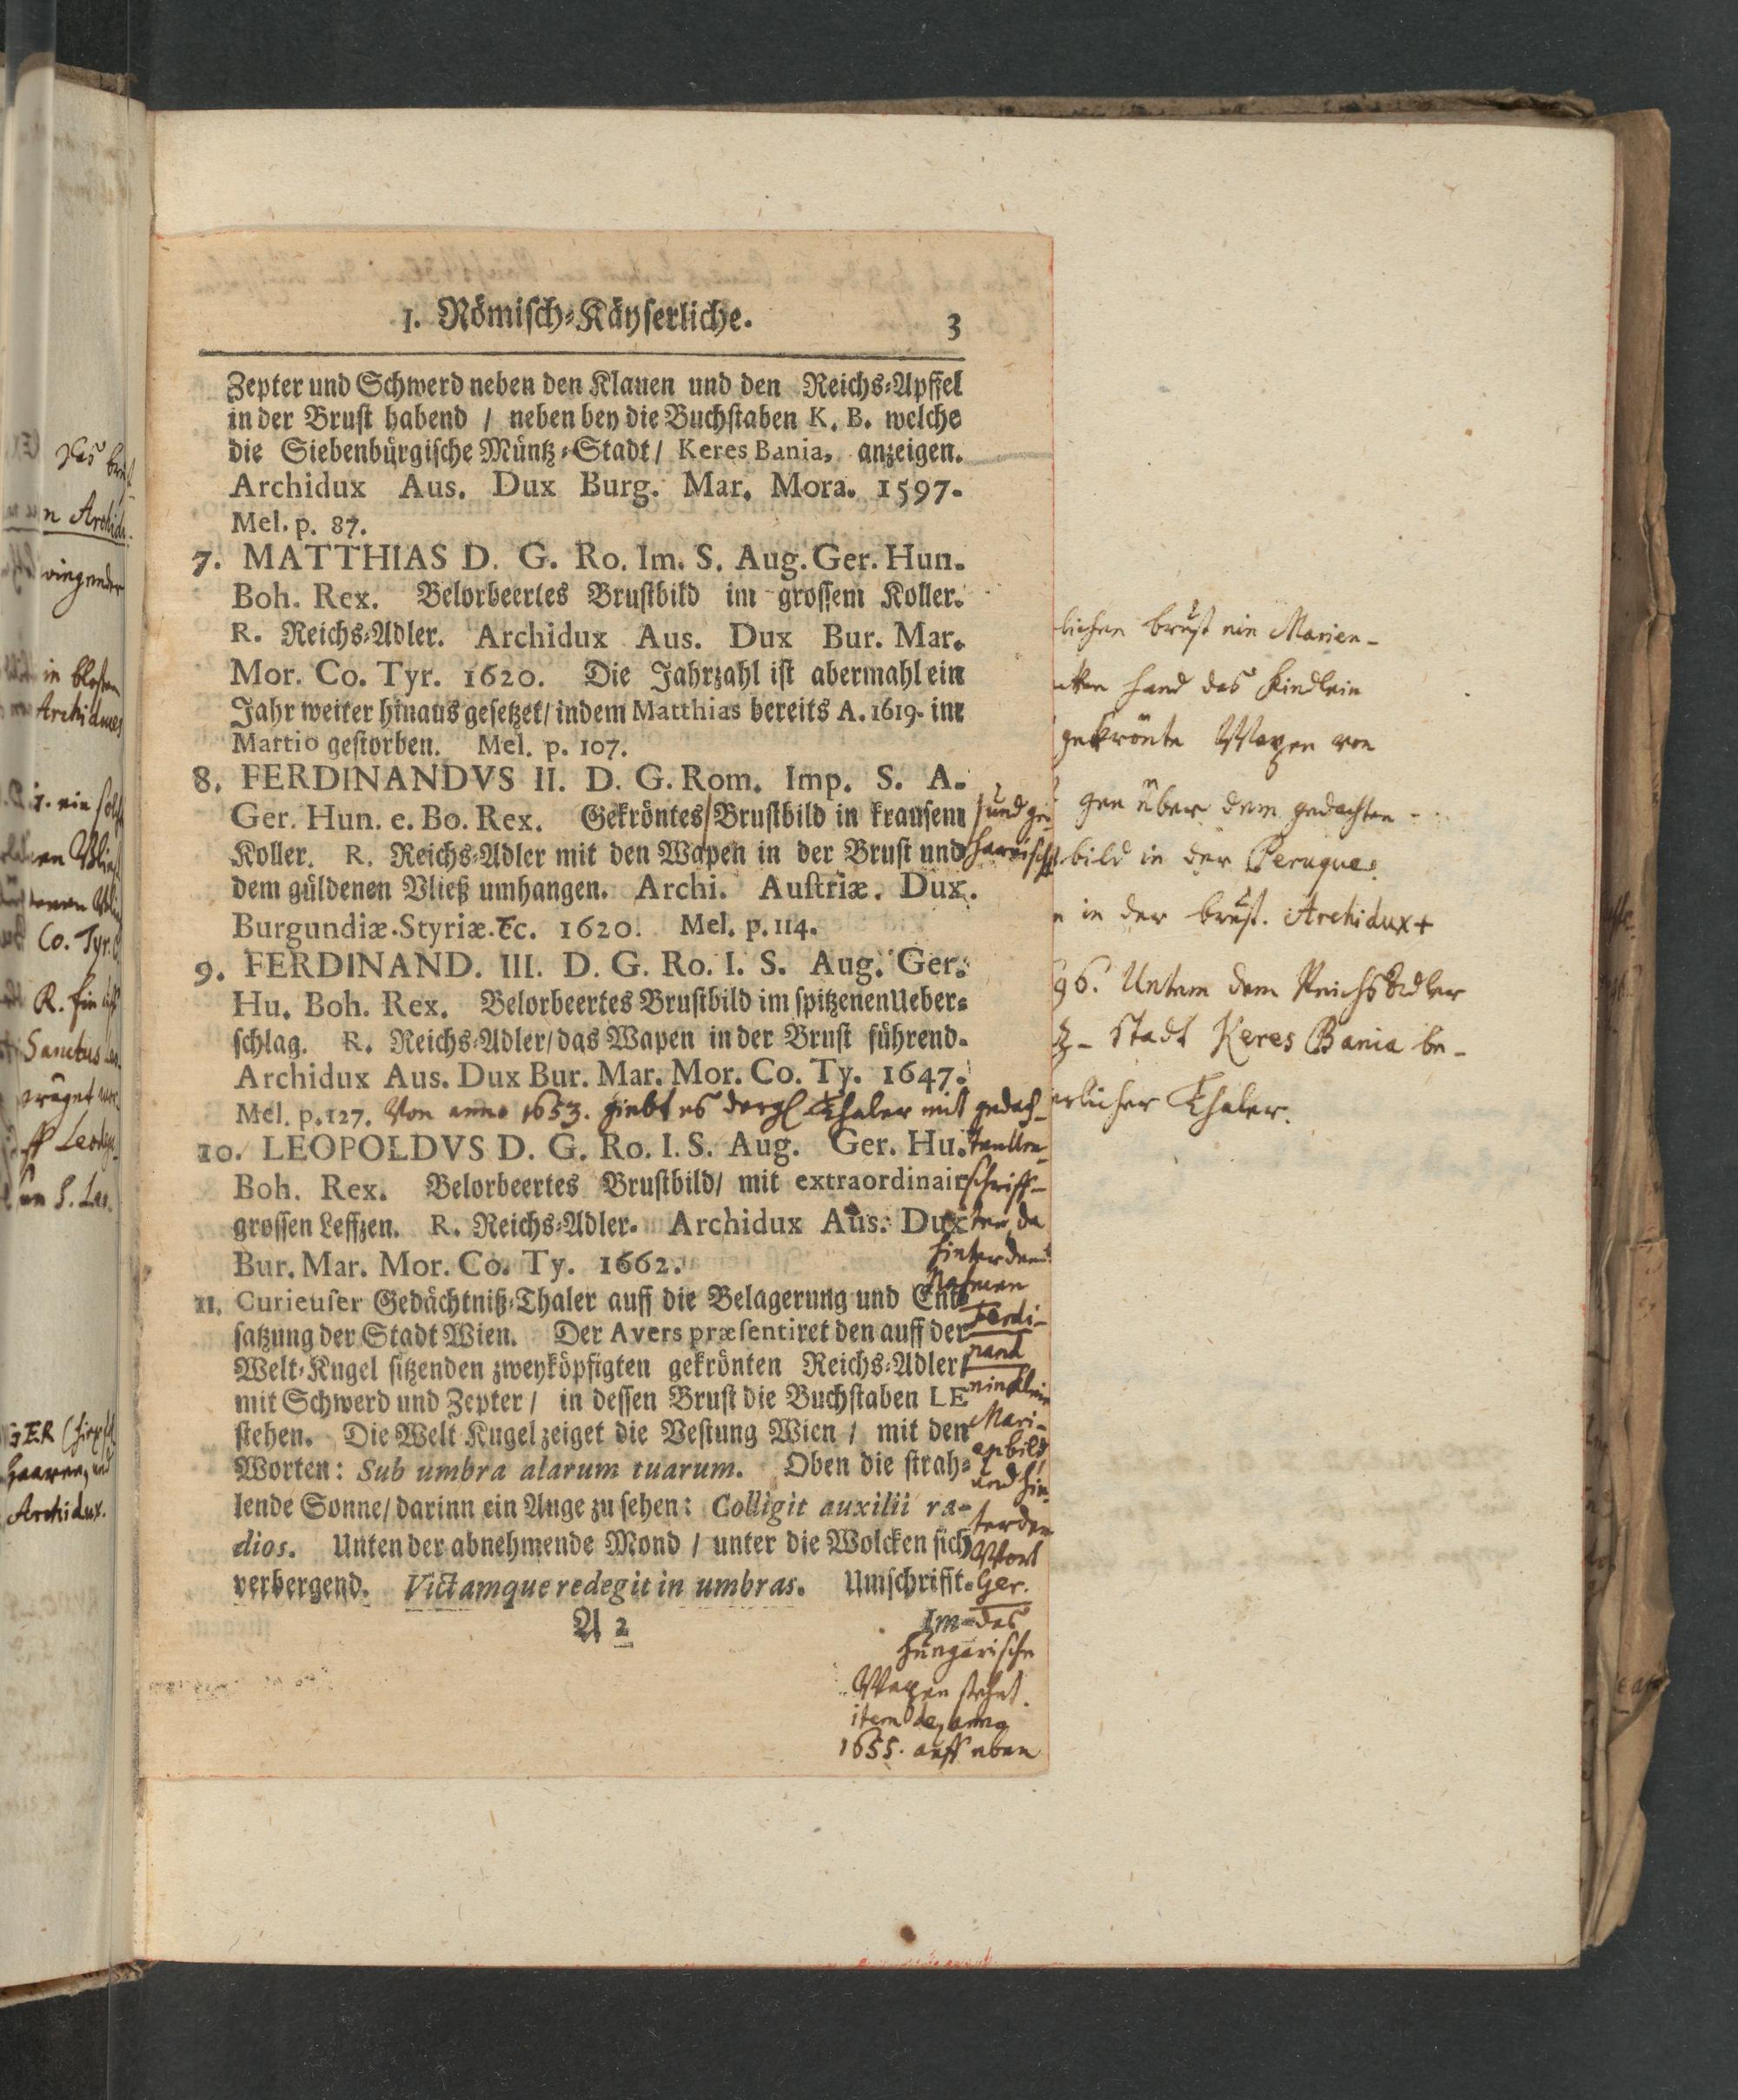 1. Römisch-Käyserliche. 3
Zepter und Schwerd neben den Klauen und den Reichs-Apffel
in der Brust habend / neben bey die Buchstaben K. B. welche
die Siebenbürgische Müntz-Stadt / Keres Bania, anzeigen.
Archidux Aus. Dux Burg. Mar. Mora. 1597.
Mel. p. 87.
7. MATTHIAS D. G. Ro. Im. S. Aug. Ger. Hun.
Boh. Rex. Belorbeertes Brustbild im grossem Koller.
R. Reichs-Adler. Archidux Aus. Dux Bur. Mar.
Mor. Co. Tyr. 1620. Die Jahrzahl ist abermahl ein
Jahr weiter hinaus gesetzet / indem Matthias bereits A. 1619. im
Martio gestorben. Mel. p. 107.
8. FERDINANDVS II. D. G. Rom. Imp. S. A.
Ger. Hun. e. Bo. Rex. Gekröntes Brustbild in krausem
Koller. R. Reichs-Adler mit den Wapen in der Brust und
dem güldenen Vließ umhangen. Archi. Austriæ. Dux.
Burgundiæ. Styriæ. &c. 1620. Mel. p. 114.
9. FERDINAND. III. D. G. Ro. I. S. Aug. Ger.
Hu. Boh. Rex. Belorbeertes Brustbild im spitzenen Ueber-
schlag. R. Reichs-Adler / das Wapen in der Brust führend.
Archidux Aus. Dux Bur. Mar. Mor. Co. Ty. 1647.
Mel. p. 127. Von anno 1653. giebt es dergl Thaler mit gedach-
10. LEOPOLDVS D. G. Ro. I. S. Aug. Ger. Hu.
Boh. Rex. Belorbeertes Brustbild / mit extraordinair
grossen Leffzen. R. Reichs-Adler. Archidux Aus. Dux
Bur. Mar. Mor. Co. Ty. 1662.
11. Curieuser Gedächtniß-Thaler auff die Belagerung und Ent-
satzung der Stadt Wien. Der Avers præsentiret den auff der
Welt-Kugel sitzenden zweyköpfigten gekrönten Reichs-Adler /
mit Schwerd und Zepter / in dessen Brust die Buchstaben LE
stehen. Die Welt Kugel zeiget die Vestung Wien / mit den
Worten: Sub umbra alarum tuarum. Oben die strah-
lende Sonne / darinn ein Auge zu sehen: Colligit auxilii ra-
dios. Unten der abnehmende Mond / unter die Wolcken sich
verbergend. Victamque redegit in umbras. Umschrifft.
A 2 Im-
und ge-
harnischt
schriff-
ten, da
hinter dem
Nahmen
Ferdi-
nand
ein klein
Mari-
enbild
und hin-
ter dem
Wort
Ger.
das
Hungarische
Wapen stehet.
item de anno
1655. auff eben
lichen brust ein Marien-
hand das Kindlein
gekrönte Wapen von
gen über dem gedachten
bild in der Peruque.
in der brust. Archidux+
96. Untem dem Reichs Adler
tz-Stadt Keres Bania be-
erlicher Thaler.
n Archidu
in blosen
Archiduces
Co. Tyr.
Sanctus
GER
Haaren, und
Archidux.